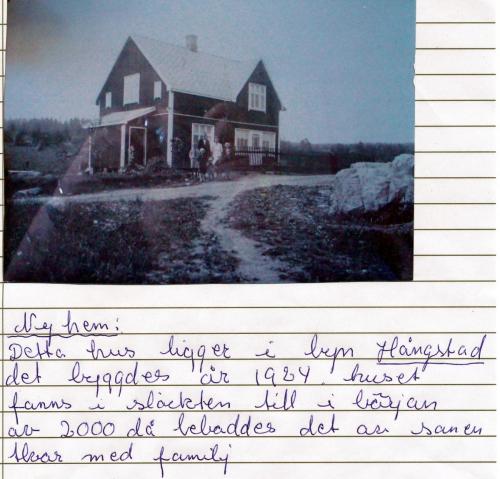 Nyhem:
Detta hus ligger i byn Hångstad
det byggdes år 1924. huset
fanns i släckten till i början
av 2000 då bebaddes det av sonen
Ivar med familj